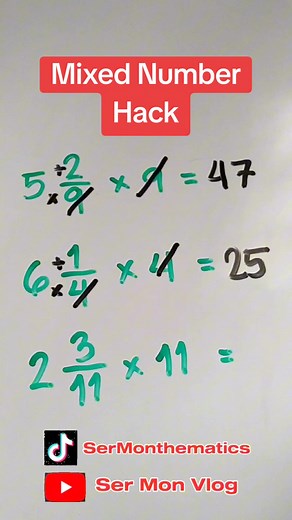 Mixed Number
Hack
5 2/9 × 9 = 47
6 1/4 × 4 = 25
2 3/11 × 11 =
SerMonthematics
Ser Mon Vlog